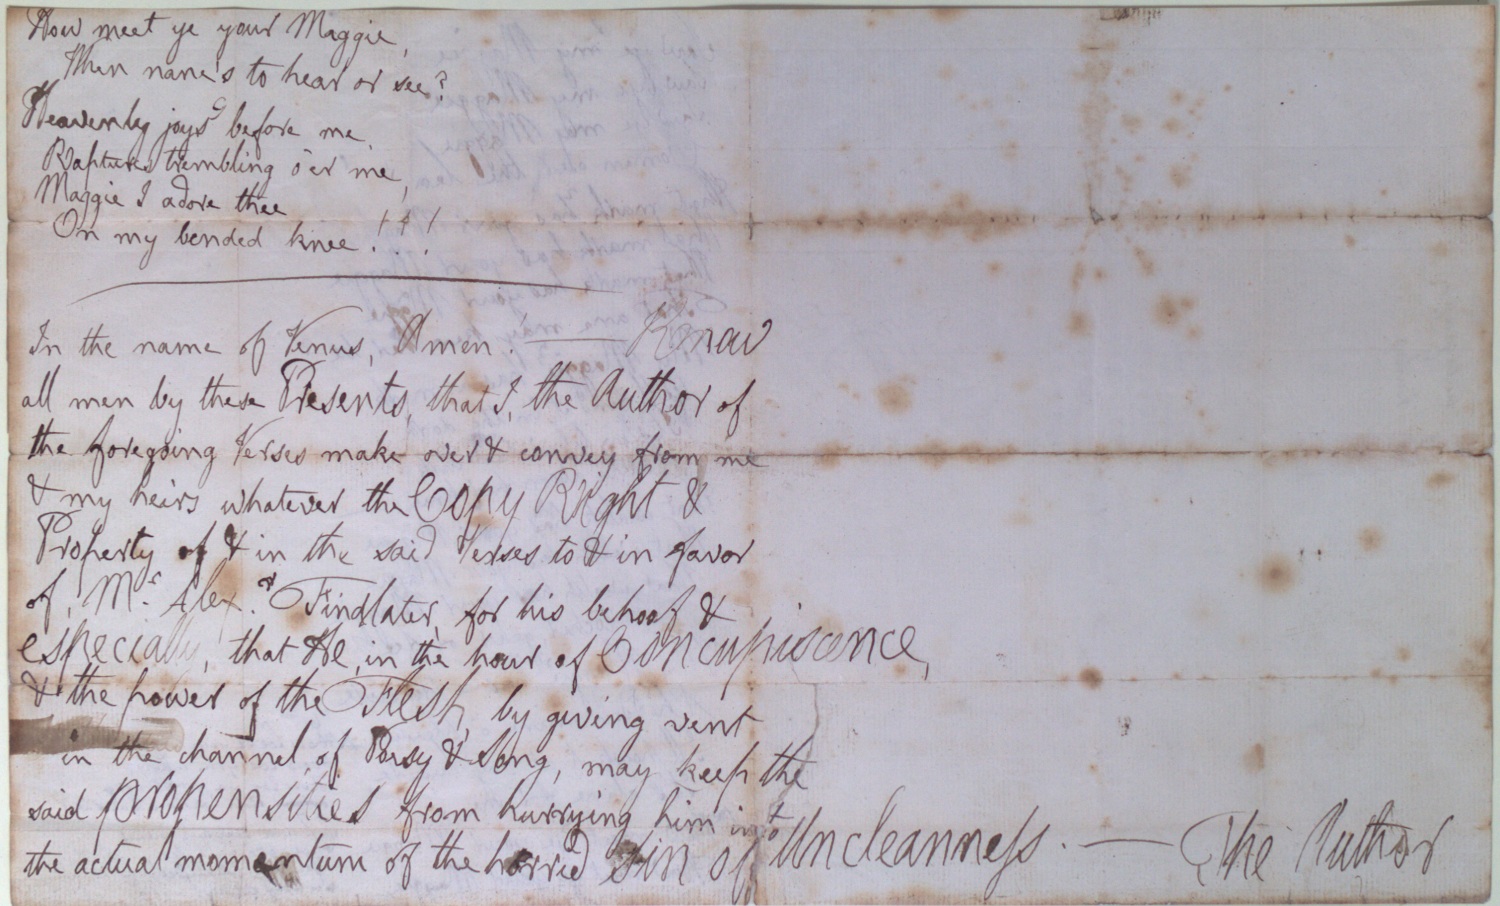 How meet ye your Maggie,
When nane's to hear or see?
Heavenly joys before me
Rapture trembling o'er me,
Maggie I adore thee
On my bended knee!!!
In the name of Venus, Amen! — Know
all men by these Presents, that I, the Author of
the foregoing Verses make over & convey from me
& my heirs whatever the Copy Right &
Property of & in the said Verses to & in favor
of, Mr. Alexr. Findlater, for his behoof &
especially, that He, in the hour of Concupiscence,
& the power of the Flesh, by giving vent
in the channel of Poesy & Song, may keep the
said propensities from hurrying him into
the actual momentum of the horrid Sin of Uncleanness. — The Author